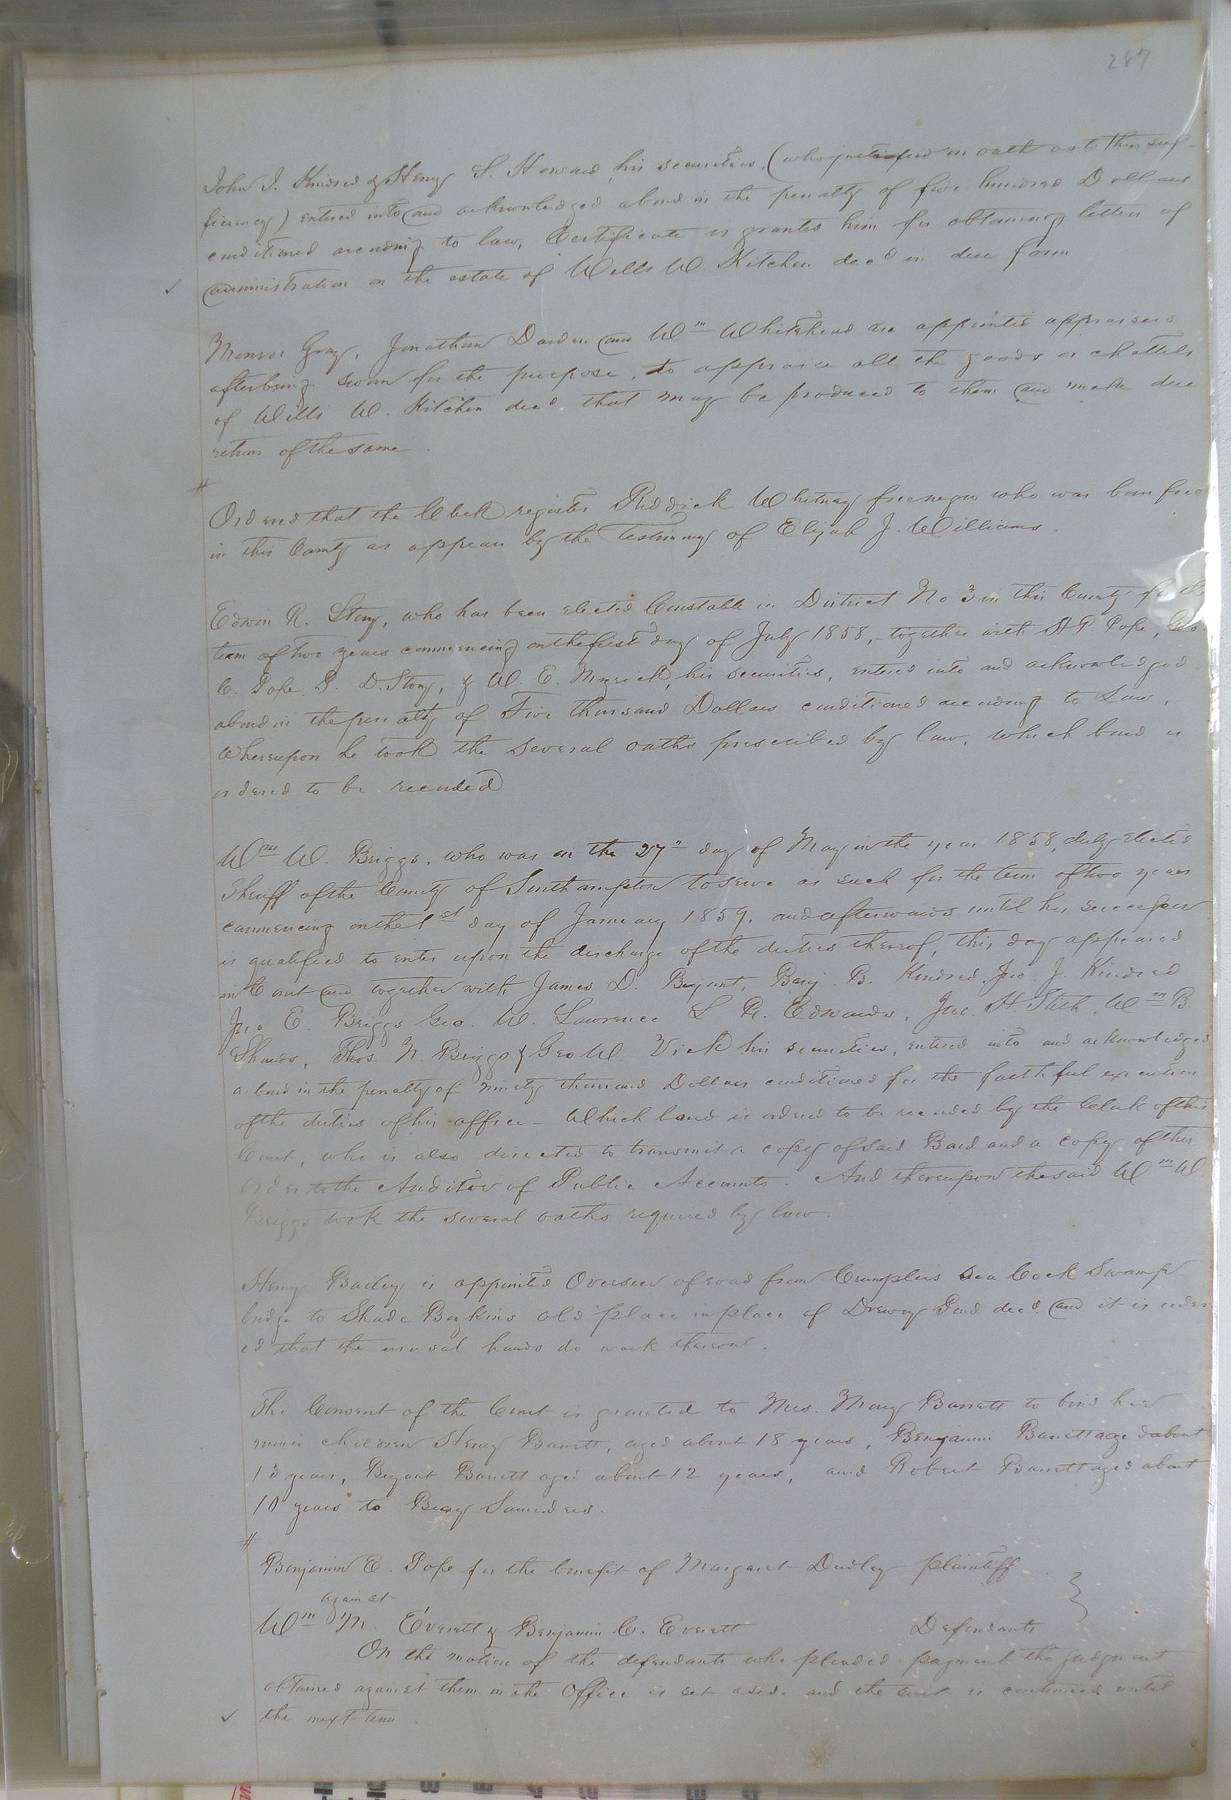 287
John J. Kindred & Henry S. Howard his securities, (who justified on oath as to their suf-
ficiency) entered into and acknowledged a bond in the penalty of five hundred Dollars
conditioned according to law, Certificate is granted him for obtaining letters of
administration on the estate of Wills W. Kitchen decd in due form
Monroe Gray, Jonathan Darden and Wm Whitehead are appointed appraisers
after being sworn for the purpose, to appraise all the goods or chattels
of Wills W. Kitchen decd that may be produced to them and make due
return of the same
Ordered that the Clerk register Riddick Whitney free negro who was born free
in this County as appears by the Testimony of Elijah J. Williams
Edwin R. Story, who has been elected Constable in District No 3 in this County for the
term of two years commencing on the first day of July 1858, together with H. P. Pope, Geo
C. Pope, D. Story, & W. E. Myrick, his securities, entered into and acknowledged
a bond in the penalty of Five thousand Dollars conditioned according to Law,
Whereupon he took the several oaths prescribed by law, which bond is
ordered to be recorded
Wm W. Briggs, who was on the 27th day of May in the year 1858, duly elected
Sheriff of the County of Southampton to serve as such for the term of two years
commencing on the 1st day of January 1859, and afterwards until his successor
is qualified to enter upon the discharge of the duties thereof, this day appeared
in Court and together with James D. Bryant, Benj. B. Kindred, Jno J. Kindred
Jno E. Briggs Geo. W. Lawrence S R. Edwards, Jno. H. Wm B.
Shands, Thos. N. Briggs & Geo W. Vick his securities, entered into and acknowledged
a bond in the penalty of ninety thousand Dollars conditioned for the faithful execution
of the duties of his office - Which bond is ordered to be recorded by the Clerk of this
Court, who is also directed to transmit a copy of said Bond and a copy of this
order to the Auditor of Public Accounts. And thereupon the said Wm W
Briggs took the several oaths required by law
Henry Bailey is appointed Overseer of road from Crumplers Sea Cock Swamp
bridge to Shade Boykins old place in place of Drewry Pond decd. and it is order
ed that the usual hands do work thereon.
The Consent of the Court is granted to Mrs. Mary Barrett to bind her
minor children Henry Barrett, aged about 18 years, Benjamin Barrett aged about
13 years, Bryant Barrett aged about 12 years, and Robert Barrett aged about
10 years to Saunders.
Benjamin E. Pope for the benefit of Margaret Dudley plaintiff
against
Wm M. Everett & Benjamin C. Everett Defendants
On the motion of the defendants who pleaded payment the judgment
obtained against them in the Office is set aside and the suit is continued until
the next term